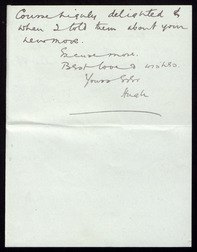 Course highly delighted &
when I told them about your
new move.
Excuse more.
Best love & wishes
Yours
Hugh